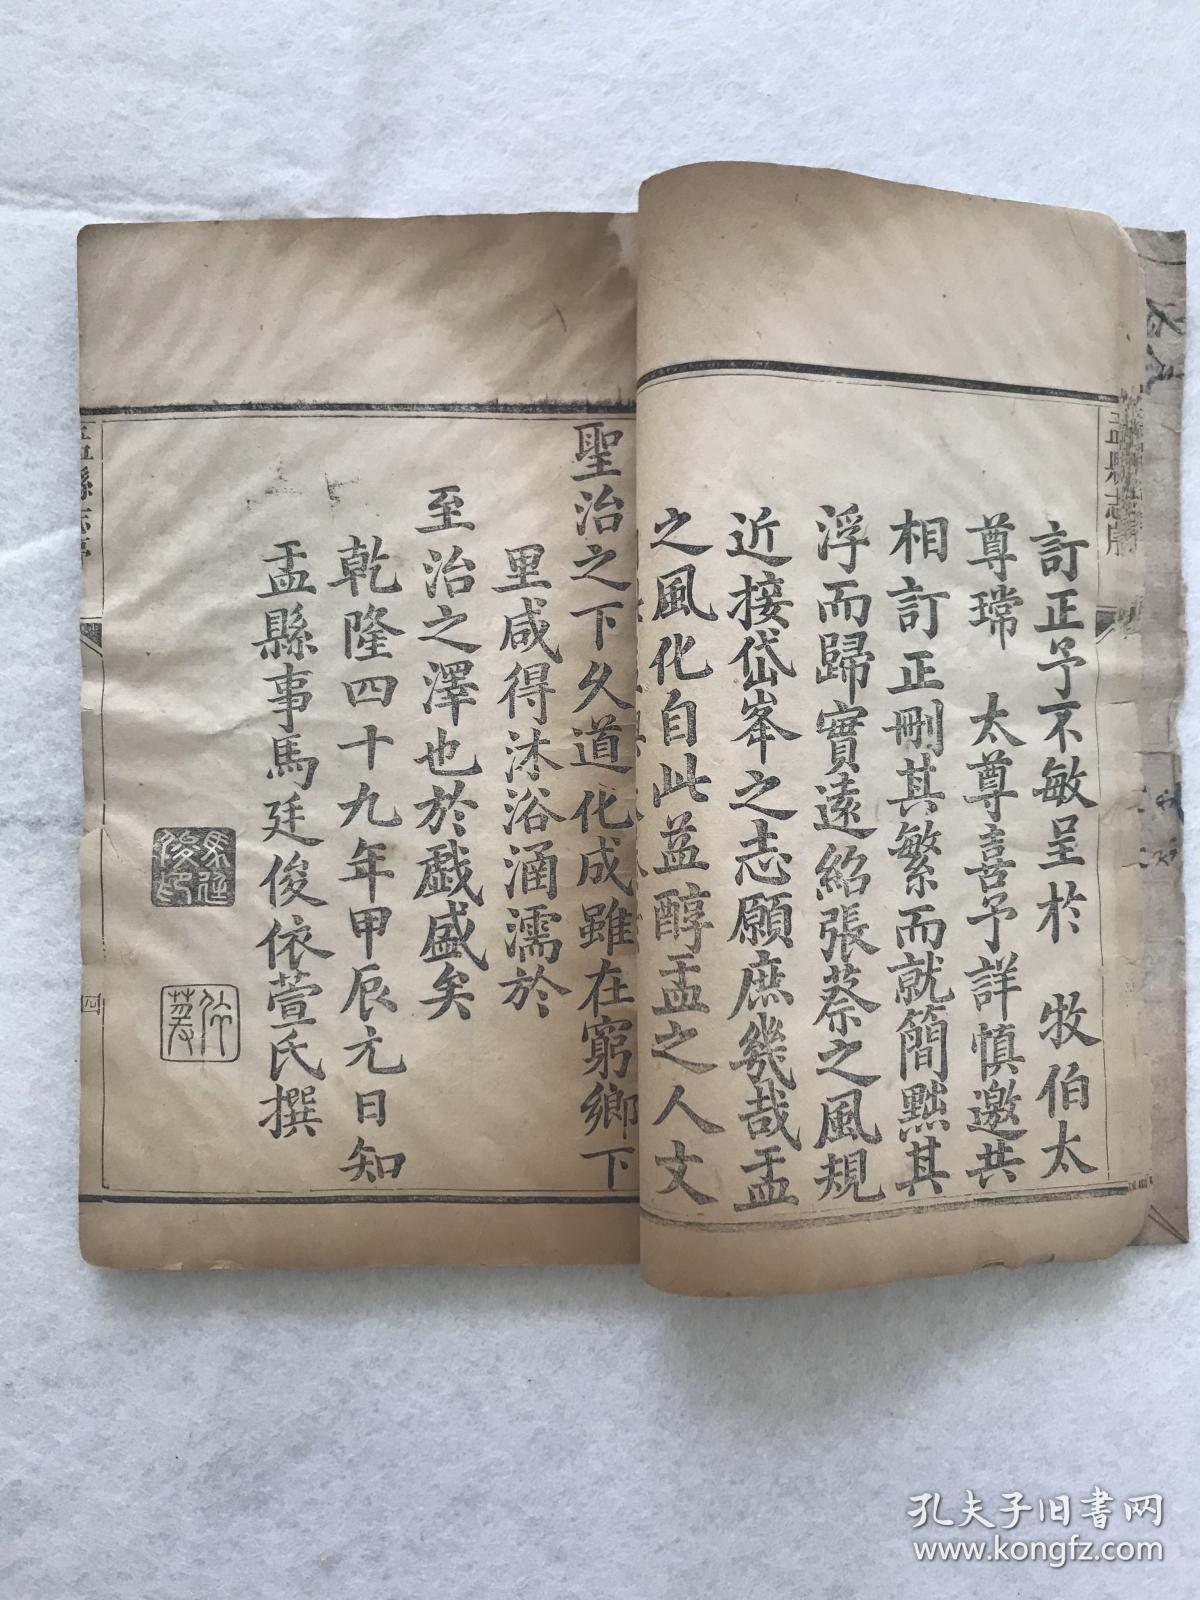 訂正予不敏呈於　牧伯太
尊瑺　太尊喜予詳慎邀共
相訂正刪其繁而就簡黜其
浮而歸實遠紹張蔡之風規
近接岱峯之志願庶幾哉盂
之風化自此益醇盂之人文
聖治之下久道化成雖在窮鄉下
里咸得沐浴涵濡於
至治之澤也於戱盛矣
乾隆四十九年甲辰元日知
盂縣事馬廷俊依萱氏撰
馬廷俊印
盂縣志序
四
盂縣志序
孔夫子旧书网
www.kongfz.com